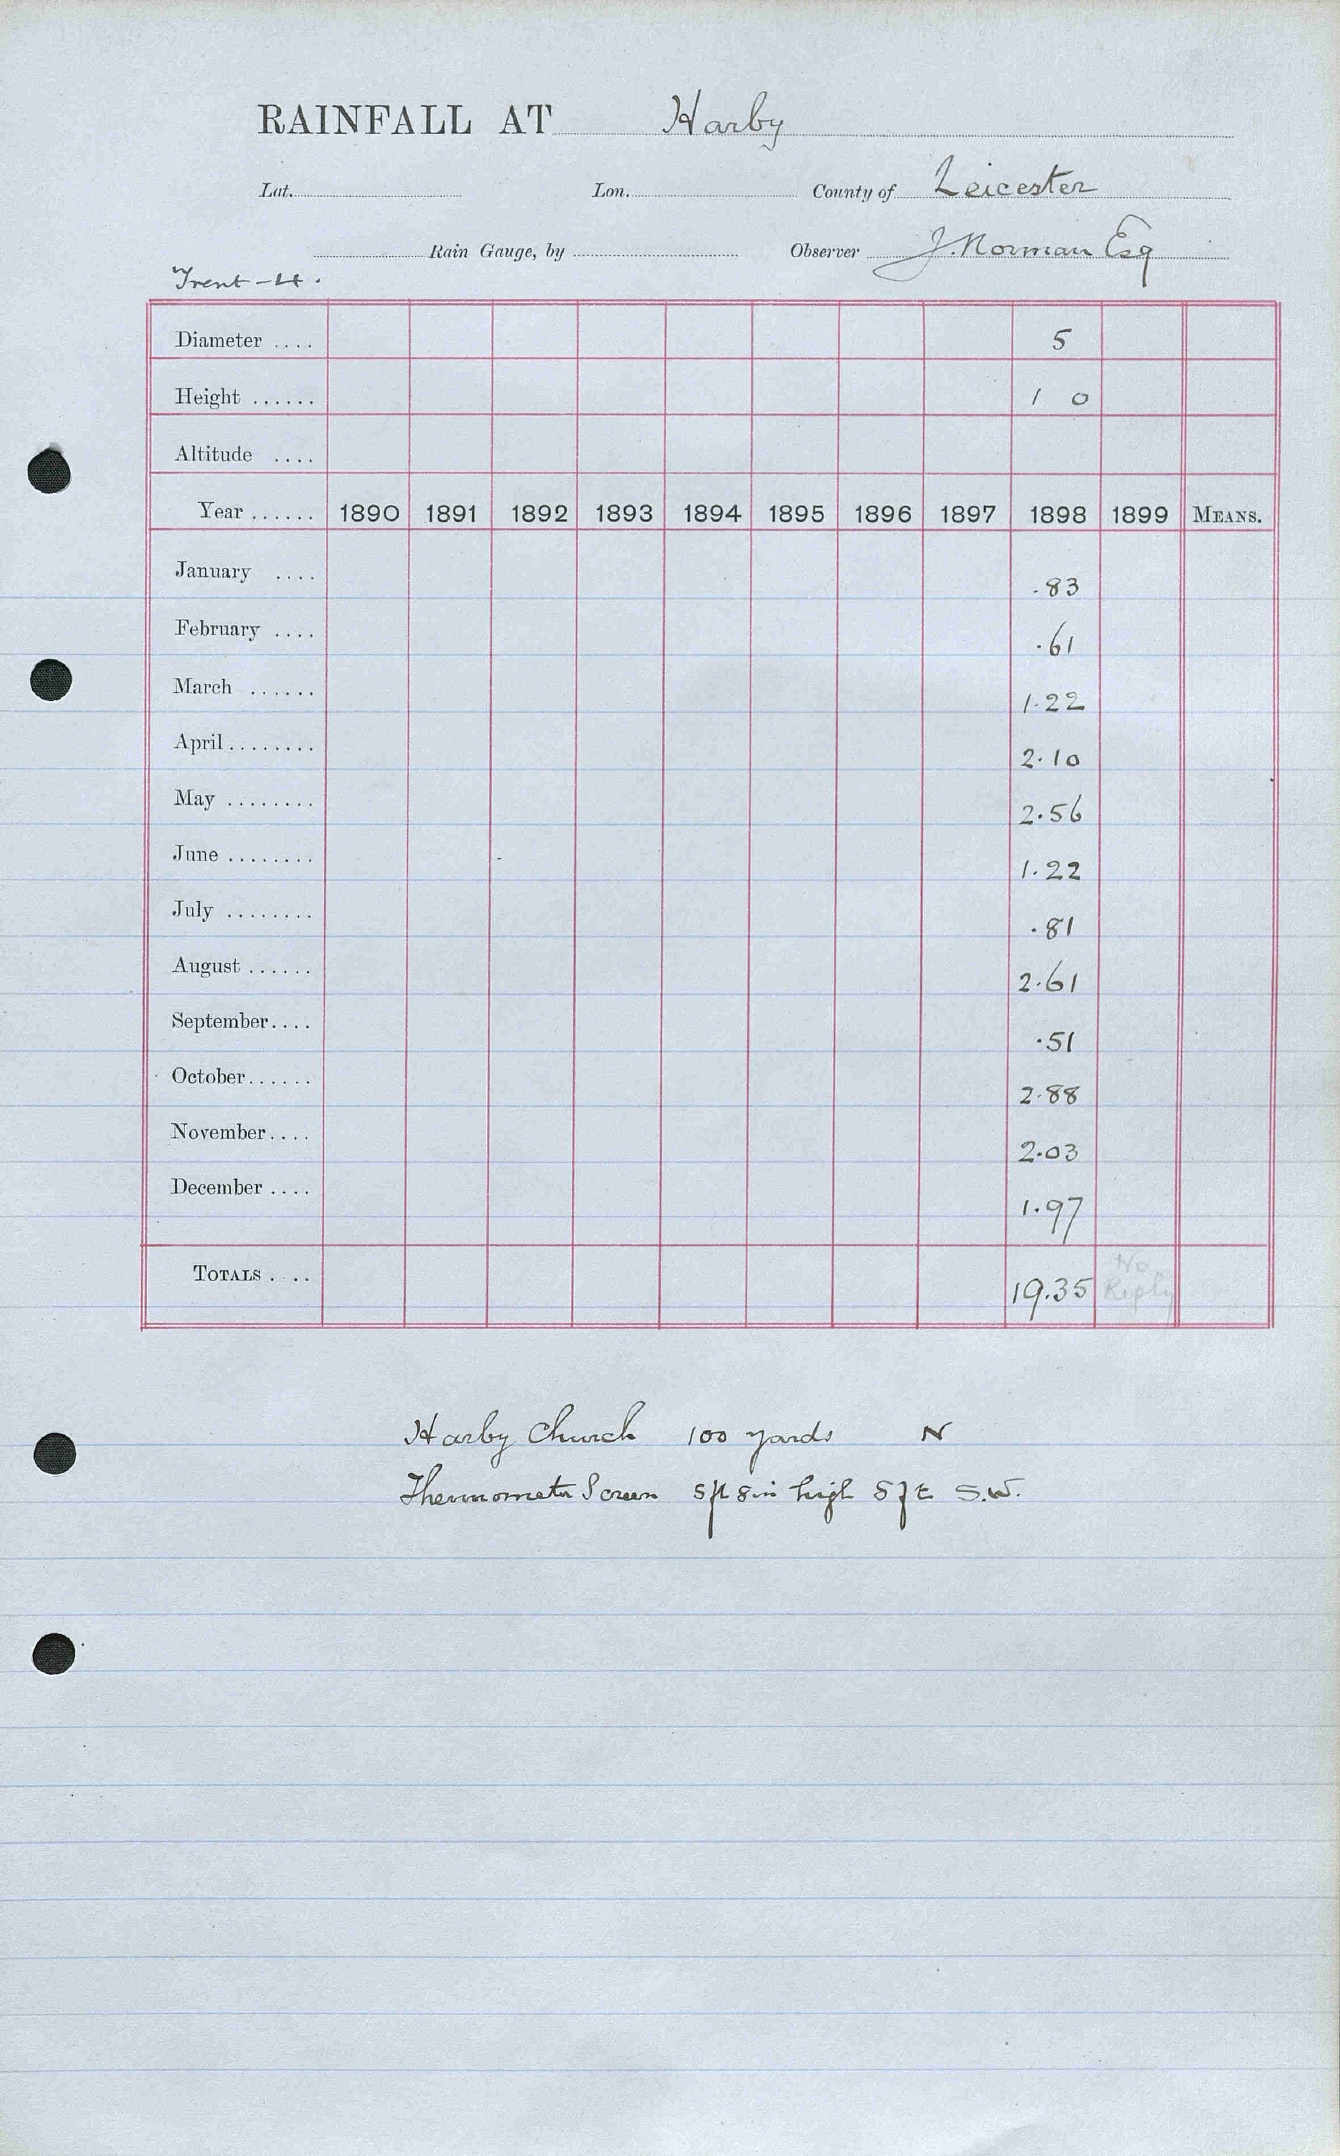 RAINFALL AT Harby
Lat. Lon. County of Leicester
Rain Gauge, by Observer J. Norman Esq
Trent – 4.
Diameter .... 5
Height ...... 1 0
Altitude ....
Year ...... 1890 1891 1892 1893 1894 1895 1896 1897 1898 1899 MEANS.
January .... .83
February .... .61
March ...... 1.22
April ........ 2.10
May ........ 2.56
June ........ 1.22
July ........ .81
August ...... 2.61
September.... .51
October...... 2.88
November.... 2.03
December .... 1.97
TOTALS .... 19.35 No Reply
Harby Church 100 yards N
Thermometer Screen 5ft 8in high 5ft S.W.